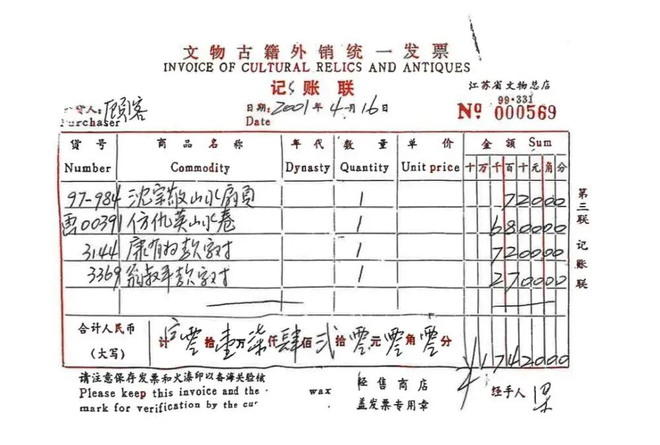 文物古籍外销统一发票
INVOICE OF CULTURAL RELICS AND ANTIQUES
记账联
江苏省文物总店
99·331
购货人: 顾客
日期: 2001年4月16日
Purchaser
Date
№ 000569
货号 商品名称 年代 数量 单价 金额 Sum
Number Commodity Dynasty Quantity Unit price 十万千百十元角分
97-984 沈宗敬山水扇页 1 72000
书00391 仿仇英山水卷 1 680000
3144 康有为款字对 1 720000
3369 翁叔平款字对 1 270000
合计人民币
(大写)
计 零拾壹万柒仟肆佰贰拾零元零角零分
¥1742000
请注意保存发票和火漆印以备海关验核
Please keep this invoice and the wax
mark for verification by the cus
经售商店
盖发票专用章
经手人 梁
第三联 记账联